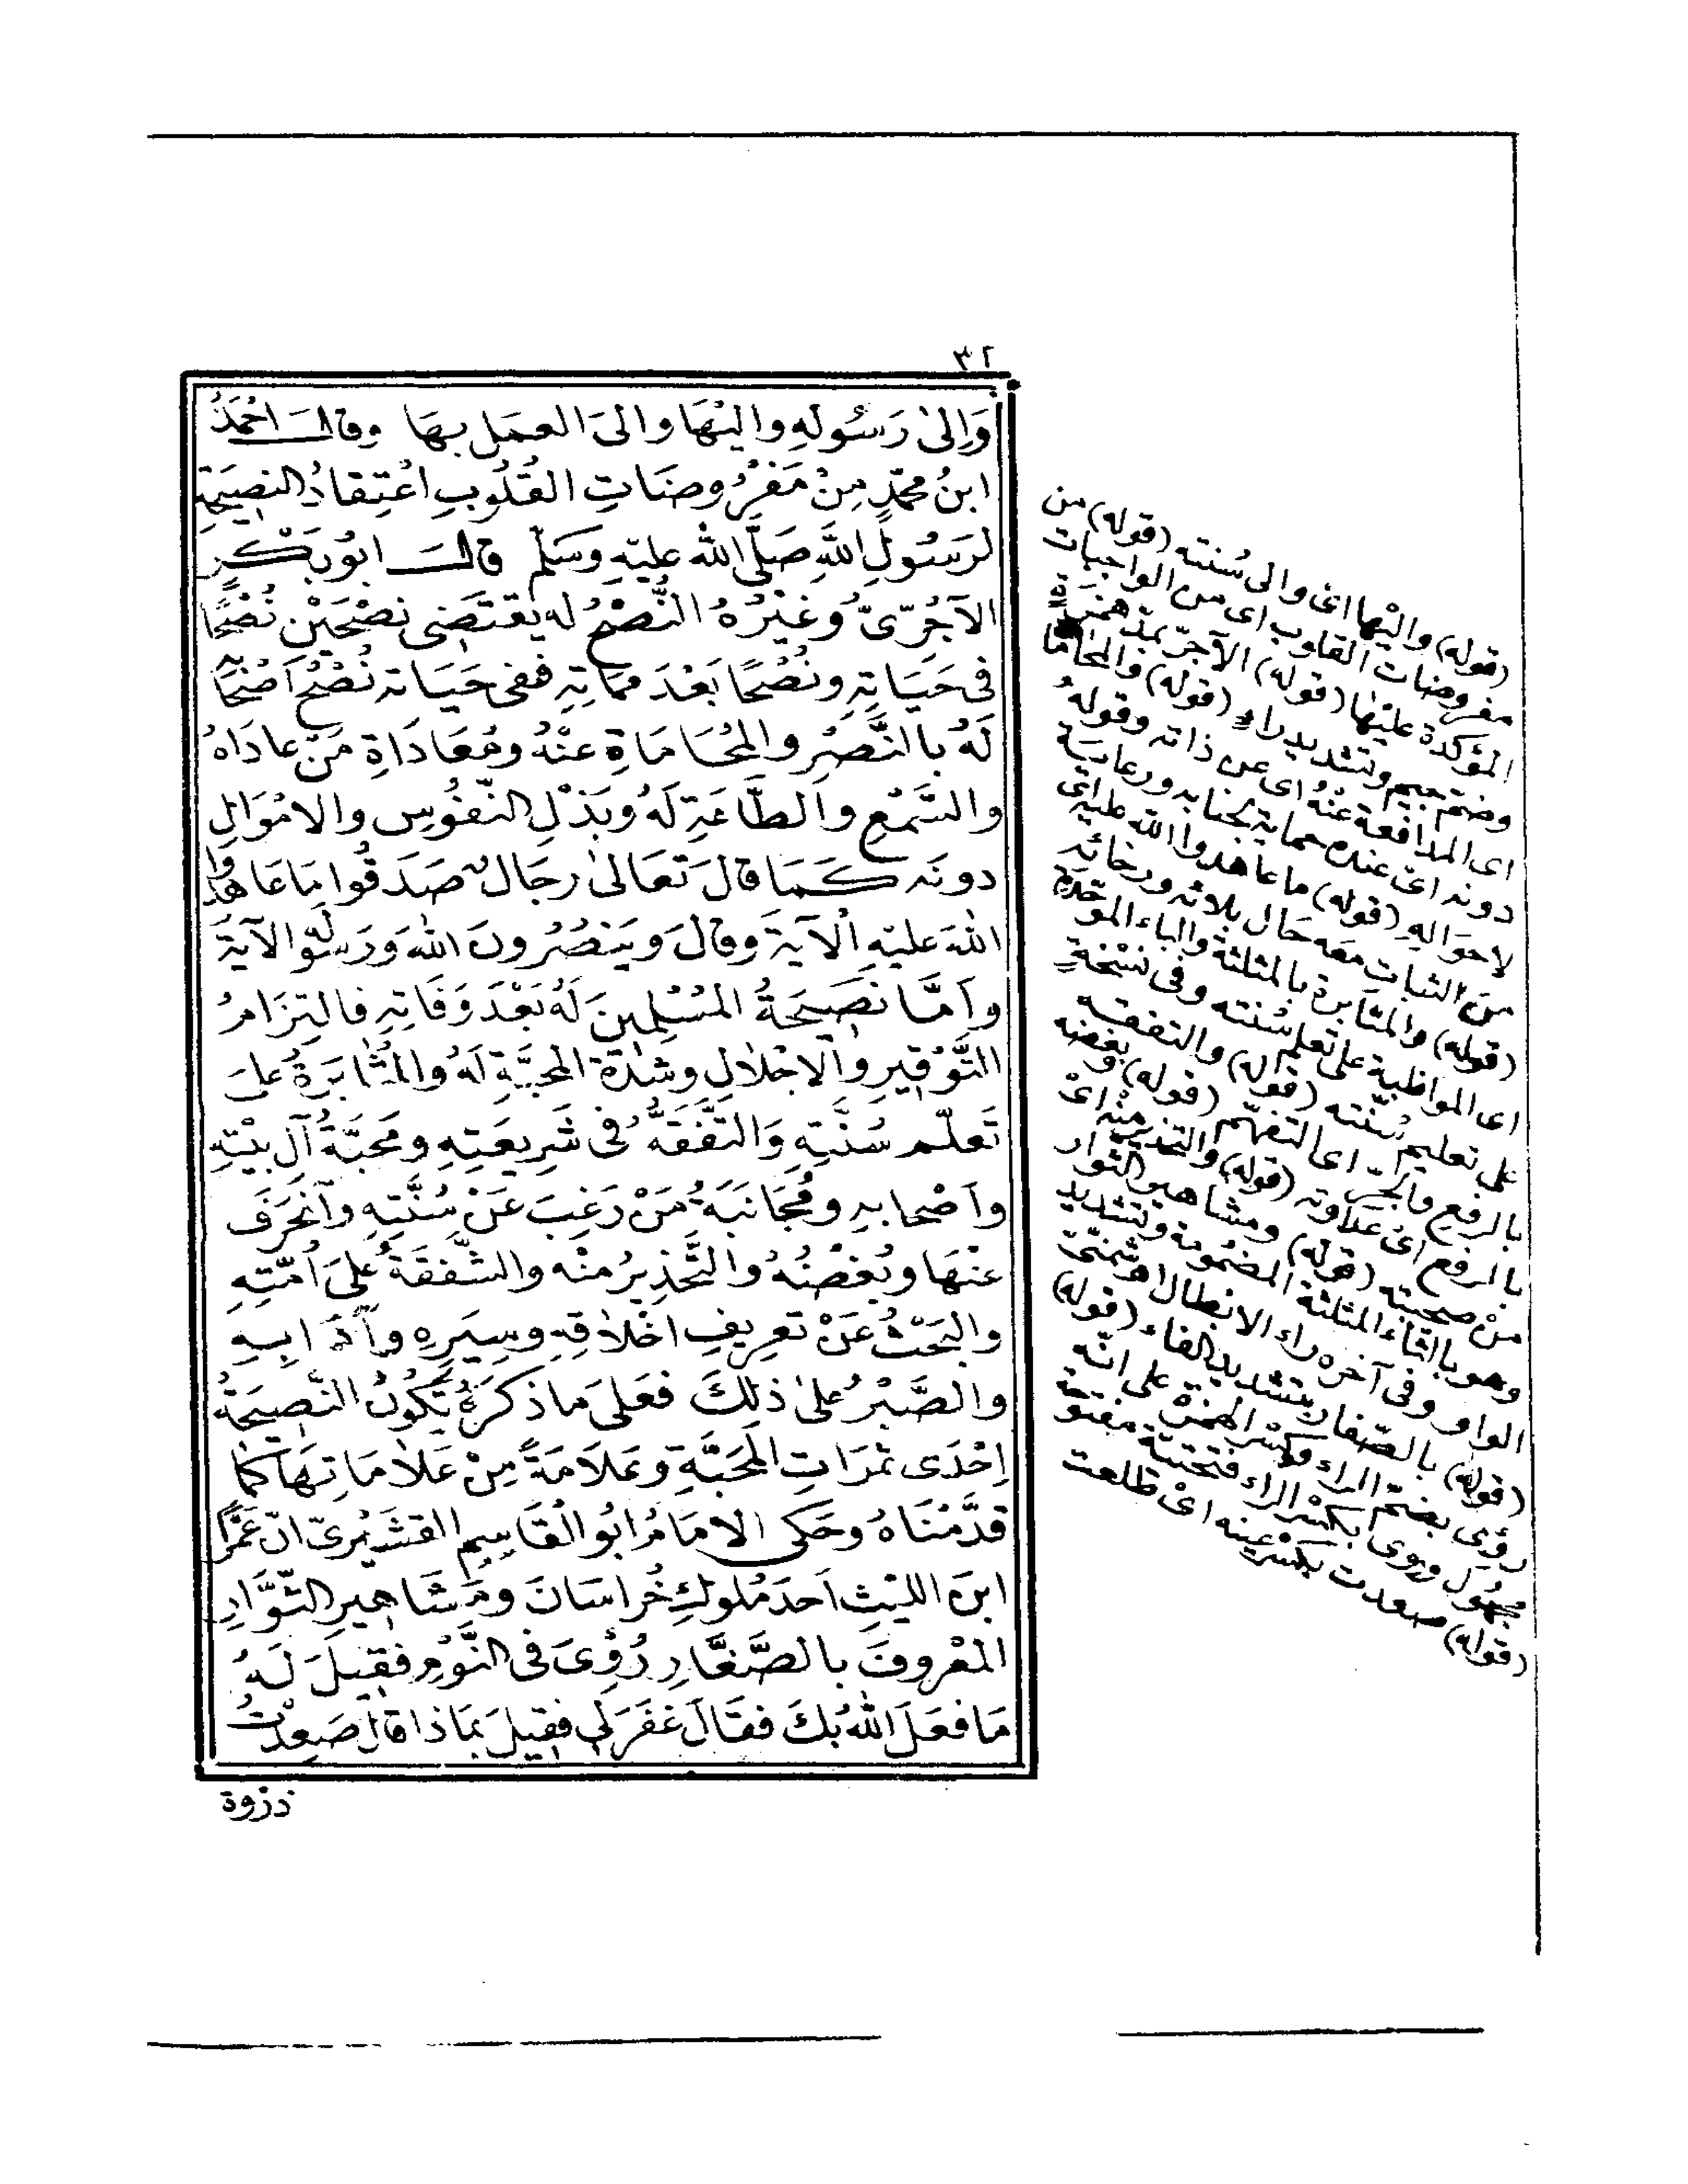 ٣٢
وَاِلىٰ رَسُولِهِ واليْهَا والىَ العمَل بهَا وقالَ احْمَدُ
ابنُ محمّدٍ مِنْ مَفْرُوضَاتِ القُلُوبِ اعْتِقادُ النصِيحَةِ
لرَسُولِ اللهِ صَلَّى الله عليْهِ وَسَلّم قالَ ابوُ بَكْرٍ
الآجُرّىّ وغيْرُهُ النُّصْحُ له يقتضِى نصْحَيْنِ نُصْحًا
فى حَيَاتِهِ ونُصْحًا بَعْدَ مَمَاتِهِ ففى حَيَاتهِ نُصْحُ اَصْحَابِهِ
لَهُ بالنَّصْرِ والمُحَامَاةِ عنْهُ ومُعَادَاةِ مَنْ عادَاهُ
والسَّمْعِ والطَّاعَةِ لَهُ وبَذْلِ النّفوُسِ والامْوَالِ
دونَه كَمَا قالَ تَعَالىٰ رجَالٌ صَدَقُوا مَا عَاهَدُوا
اللهَ عليْهِ الْآيةَ وقالَ وَينصُرُونَ اللهَ وَرَسُولَهُ الآيةَ
واَمَّا نَصِيحَةُ المُسْلِمِينَ لَهُ بَعْدَ وَفَاتِهِ فالتِزَامُ
التَّوْقيرِ والاجْلالِ وشدّة المحبَّةِ لَهُ والمُثَابَرَةُ علىَ
تَعَلّم سُنَّتِهِ وَالتَّفَقّهُ فى شَرِيعَتِهِ ومَحبَّةُ آلِ بيْتِهِ
واَصْحابهِ ومُجَانَبَةُ مَنْ رَغِبَ عَنْ سُنَّتِهِ وَانْحَرَفَ
عنْهَا وبُغْضُهُ والتَّحْذِيرُ منْه والشَّفَقَةُ علىَ اُمّتِهِ
والبَحْثُ عَنْ تعرِيفِ اخْلاقِهِ وسِيَرِهِ وآدَابِهِ
والصَّبْرُ علىٰ ذلِكَ فَعَلىَ مَا ذكَرَهُ تَكُونُ النَّصِيحَةُ
اِحْدَى ثمَرَاتِ المَحَبَّةِ وعَلَامَةً مِنْ عَلَامَاتِهَا كَمَا
قدَّمْنَاهُ وحَكى الامَامُ ابُو القَاسِمِ القشَيْرىّ انّ عَمْرًا
ابنَ الليْثِ اَحدَ مُلوكِ خُراسَانَ ومَشَاهِيرِ الثّوَّارِ
المَعْروفَ بالصَّفَّارِ رُؤْىَ فى النَّوْمِ فقِيلَ لَهُ
مَا فعَلَ اللهُ بكَ فقَالَ غفَرَ لِى فقِيلَ بمَاذا قالَ صَعِدْتُ
ذروة
(قوله) واليْها اىْ والى سُنته (قوله) من
مفروضات القلوب اى من الواجبات
المؤكدة عليْها (قوله) الآجرّ بمدّ همْزةٍ
وضمّ جيم وتشديد راء (قوله) والمحاماة
اى المدافعة عنْهُ اى عن ذاته وقولهُ
دونه اىْ عنده حماية لجنابه ورعايَة
لاحوَالهِ (قوله) ما عاهدوا الله عليْه اىْ
منَ الثباتِ معَه حَال بلائه ورخائه
(قوله) والمثابرة بالمثلثة والباء الموحّدة
اى المواظبة على تعلم سُنته وفى نسْخةٍ
على تعليم سُنّته (قوله) والتفقه
بالرفع والجرّ اى التفهّم (قوله) وبغضه
بالرفع اىْ عَدَاوته (قوله) والتحذير منْه اىْ
منْ صحبته (قوله) ومشاهير الثوار
وهو بالثاء المثلثة المضْمُومة وتشديد
الواو وفى آخره راء الابطال
(قوله) بالصّفار بتشديد الفاء (قوله)
رؤى بضمّ الراء وكسْر الهمْزة على انّه
مجهُول وروى بكسْر الراء فتحتية مفتوحة
(قوله) صعدت بكسْر عينه اىْ طلعت